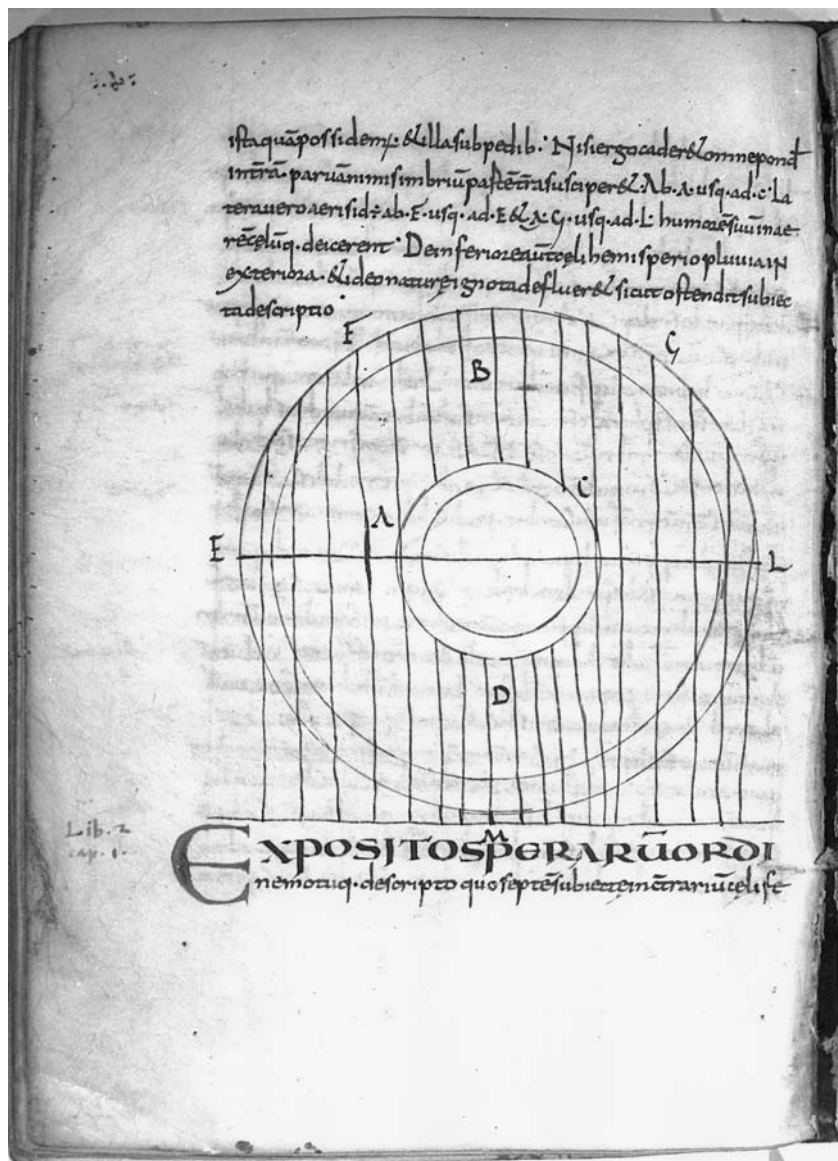 istaquāpossidem; &illasubpedib; Nisiergocader&omnepond
intrā· paruānimisimbriūpartētrasusciper& Ab·A·usq·ad·C· La
teraueroaerisid÷ab·F·usq·ad·E&A·G·usq·ad·L· humorēsuūinae
recęlūq·deicerent· Deinferioreaūtcęlihemisperiopluuiain
exteriora·&ideonaturęignotadefluer&sicutostenditsubiec
tadescriptio
F G
B
A C
E L
D
Lib. 2
cap. 1.
EXPOSITOSPERARŪORDI
M
nemotuq·descripto quoseptēsubiectęincōtrariūcęlife